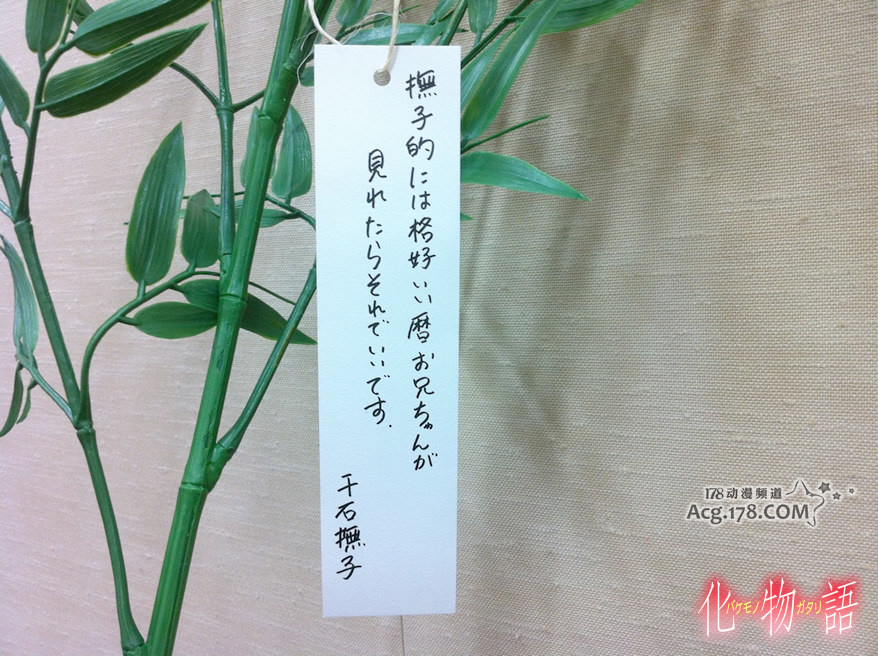 撫子的には格好いい暦お兄ちゃんが
見れたらそれでいいです.
千石撫子
178动漫频道
Acg.178.COM
化物語
バケモノガタリ